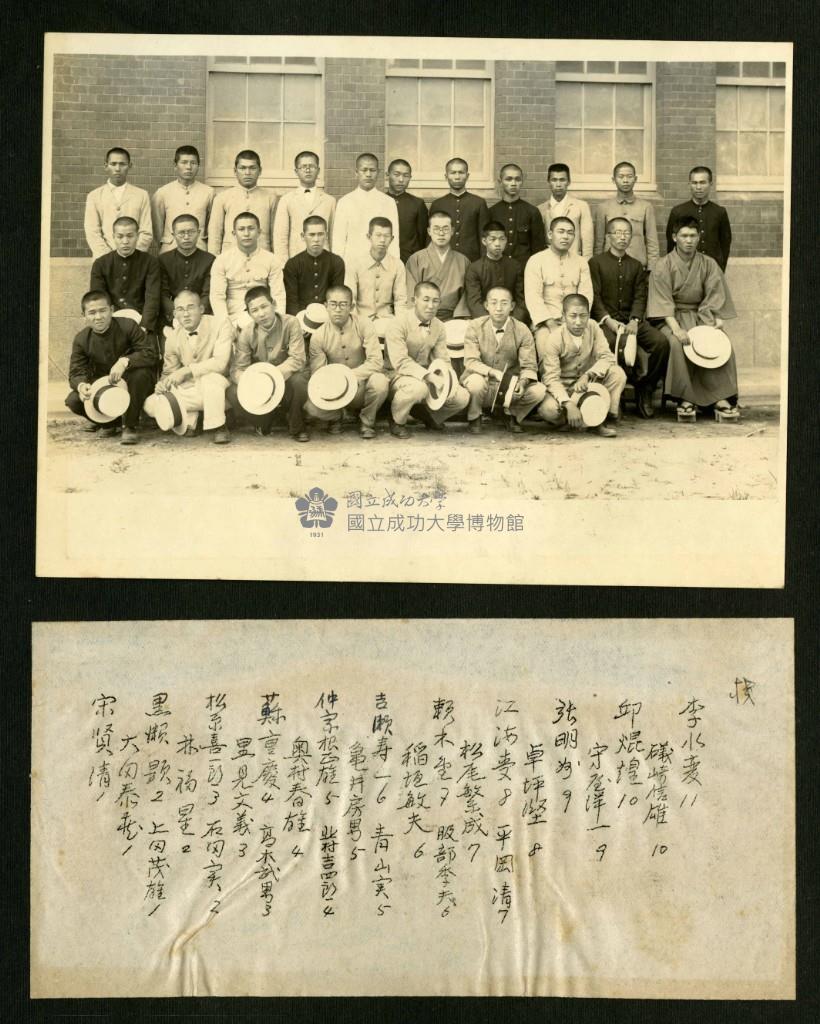 國立成功大學
國立成功大學博物館
1931
李水 11
磯崎信雄 10
邱焜煌 10
守屋洋一 9
張明 9
卓坪堅 8
江海 8 平岡清 7
松尾繁成 7
賴木 7 服部季夫 6
稲垣敏夫 6
吉瀬寿一 6 青山実 5
亀井房男 5
仲宗根正雄 5 北村吉四郎 4
奥村春雄 4
蘇重慶 4 高木武男 3
里見文義 3
松原喜一郎 3 石田実 2
林福星 2
黒瀬顕 2 上田茂雄 1
大田泰蔵 1
宋賢清 1